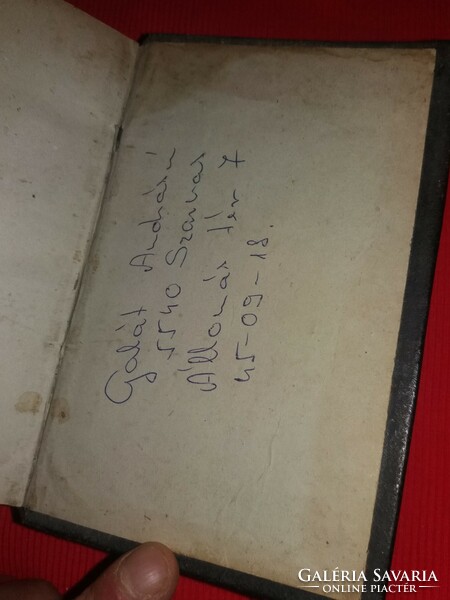 Galát Andrásń
5540 Szarvas
Állomás tér 7
45-09-18.
GALÉRIA SAVARIA
ONLINE PIACTÉR